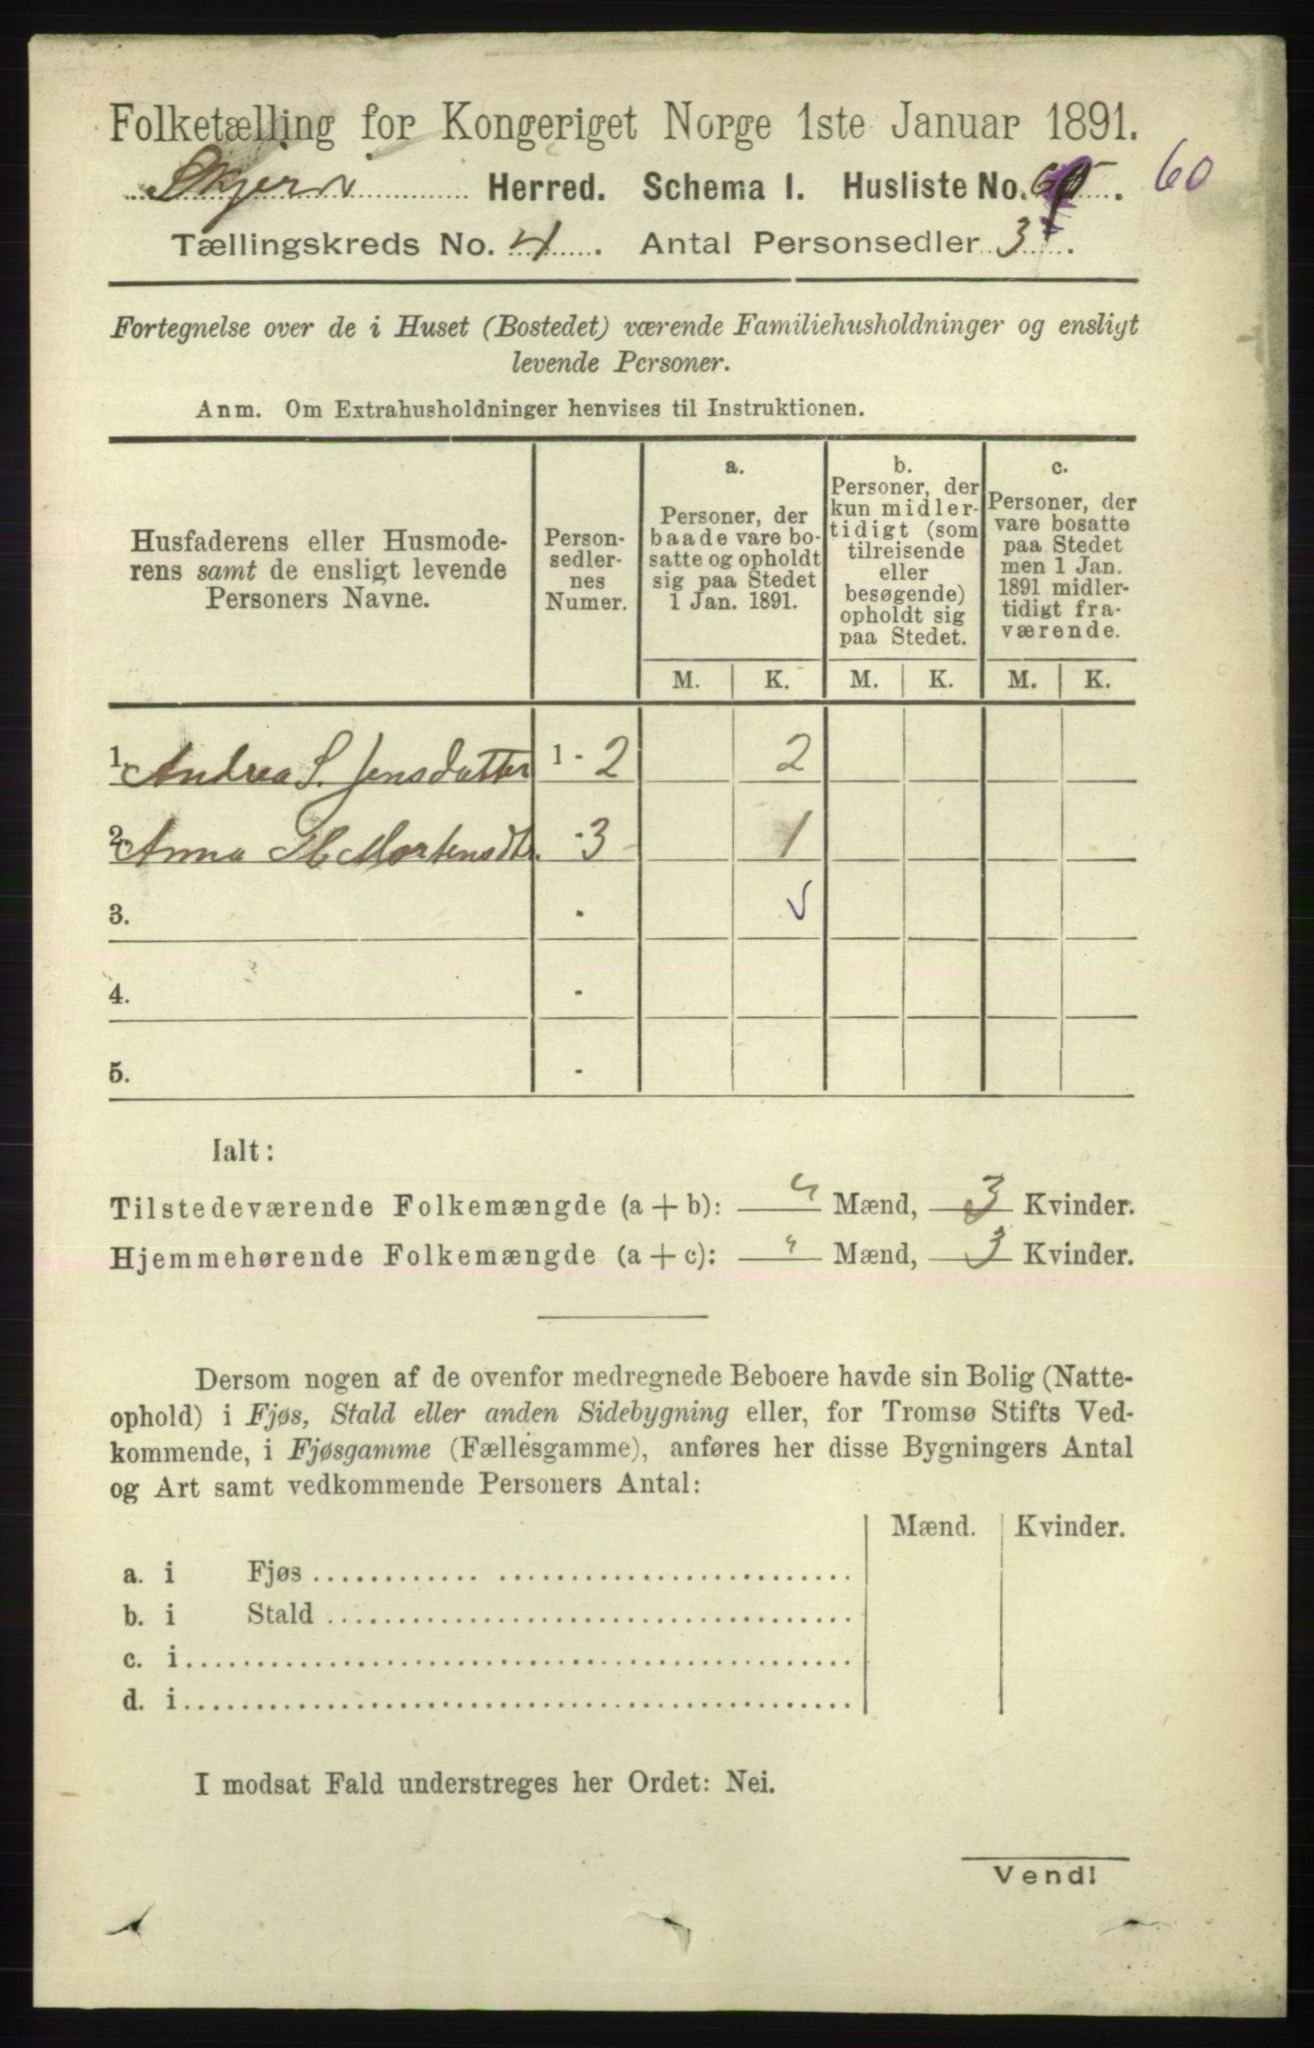 Folketælling for Kongeriget Norge 1ste Januar 1891.
Skjern Herred. Schema I. Husliste No. 60
Tællingskreds No. 4. Antal Personsedler 3.
Fortegnelse over de i Huset (Bostedet) værende Familiehusholdninger og ensligt
levende Personer.
Anm. Om Extrahusholdninger henvises til Instruktionen.
Husfaderens eller Husmode-
rens samt de ensligt levende
Personers Navne.
Person-
sedler-
nes
Numer.
a.
Personer, der
baade vare bo-
satte og opholdt
sig paa Stedet
1 Jan. 1891.
b.
Personer, der
kun midler-
tidigt (som
tilreisende
eller
besøgende)
opholdt sig
paa Stedet.
c.
Personer, der
vare bosatte
paa Stedet
men 1 Jan.
1891 midler-
tidigt fra-
værende.
M. K. M. K. M. K.
1. Andrea S. Jensdatter 1 - 2 2
2. Anna M Mortensdtr. - 3 1
3. -
4. -
5. -
Ialt:
Tilstedeværende Folkemængde (a + b): " Mænd, 3 Kvinder.
Hjemmehørende Folkemængde (a + c): " Mænd, 3 Kvinder.
Dersom nogen af de ovenfor medregnede Beboere havde sin Bolig (Natte-
ophold) i Fjøs, Stald eller anden Sidebygning eller, for Tromsø Stifts Ved-
kommende, i Fjøsgamme (Fællesgamme), anføres her disse Bygningers Antal
og Art samt vedkommende Personers Antal:
Mænd. Kvinder.
a. i Fjøs
b. i Stald
c. i
d. i
I modsat Fald understreges her Ordet: Nei.
Vend!